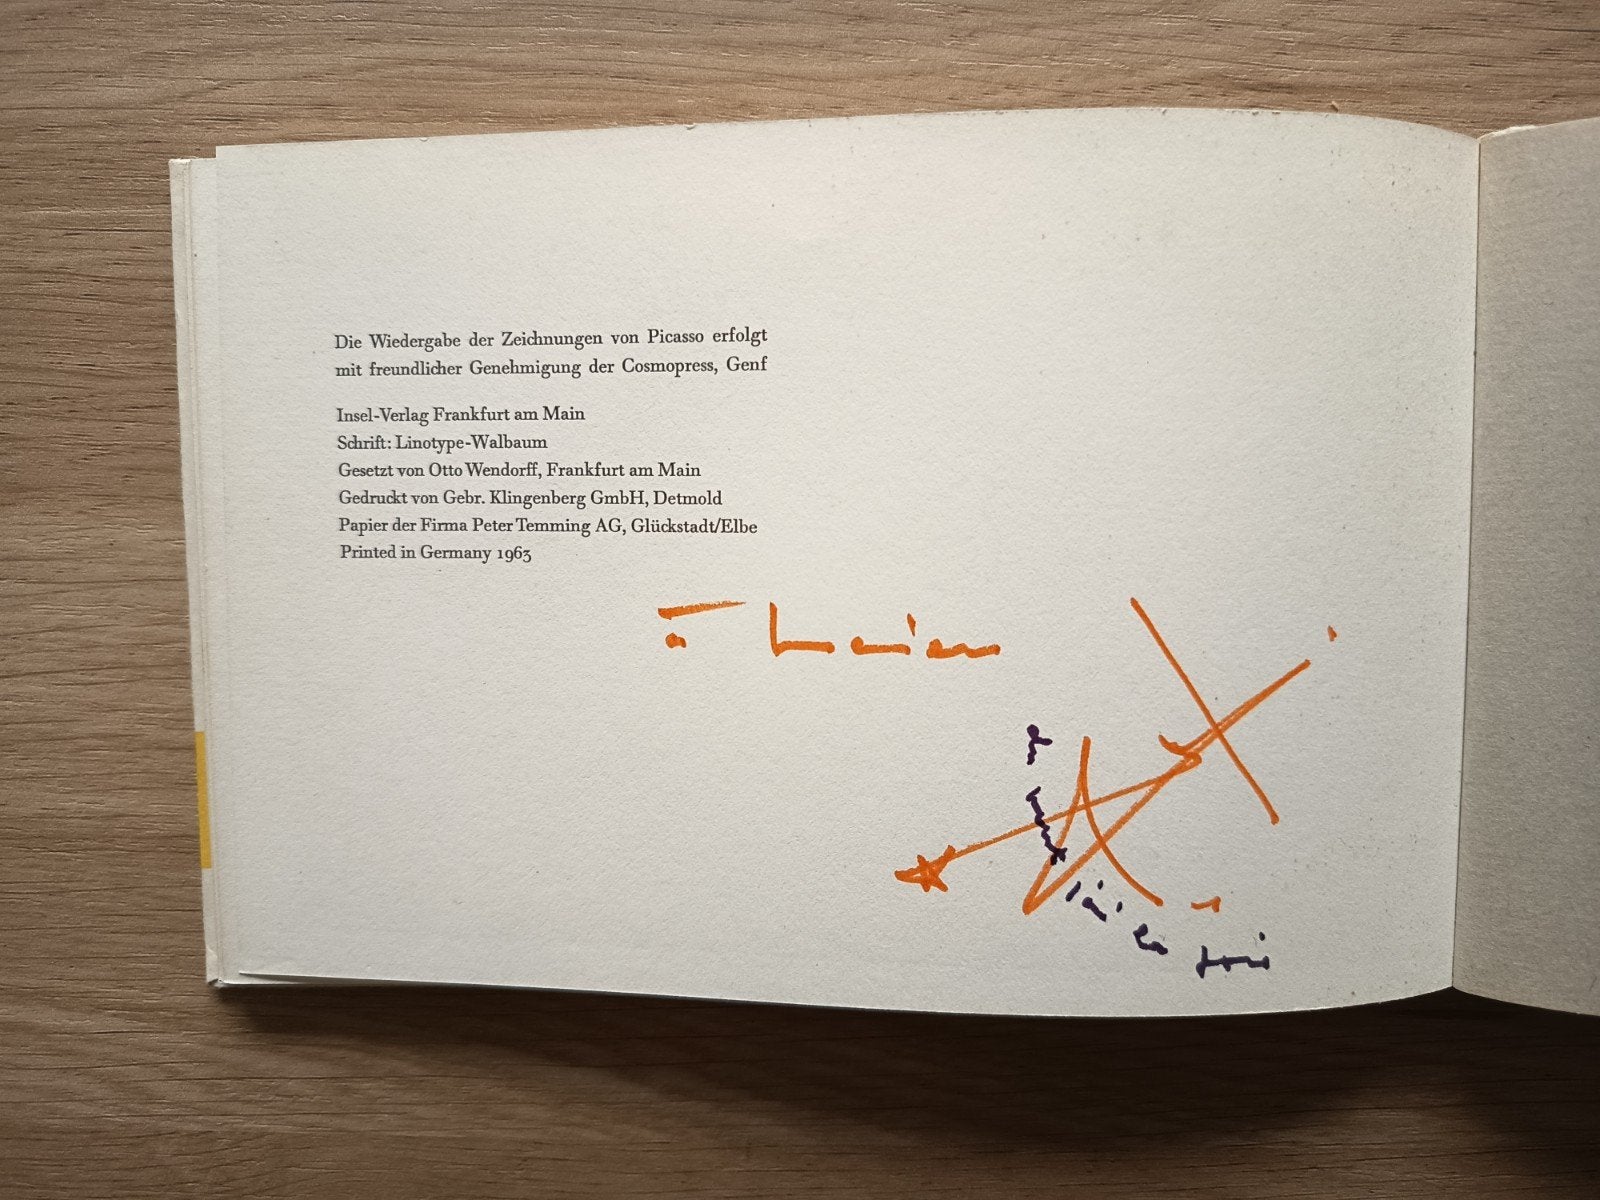 Die Wiedergabe der Zeichnungen von Picasso erfolgt
mit freundlicher Genehmigung der Cosmopress, Genf
Insel-Verlag Frankfurt am Main
Schrift: Linotype-Walbaum
Gesetzt von Otto Wendorff, Frankfurt am Main
Gedruckt von Gebr. Klingenberg GmbH, Detmold
Papier der Firma Peter Temming AG, Glückstadt/Elbe
Printed in Germany 1963